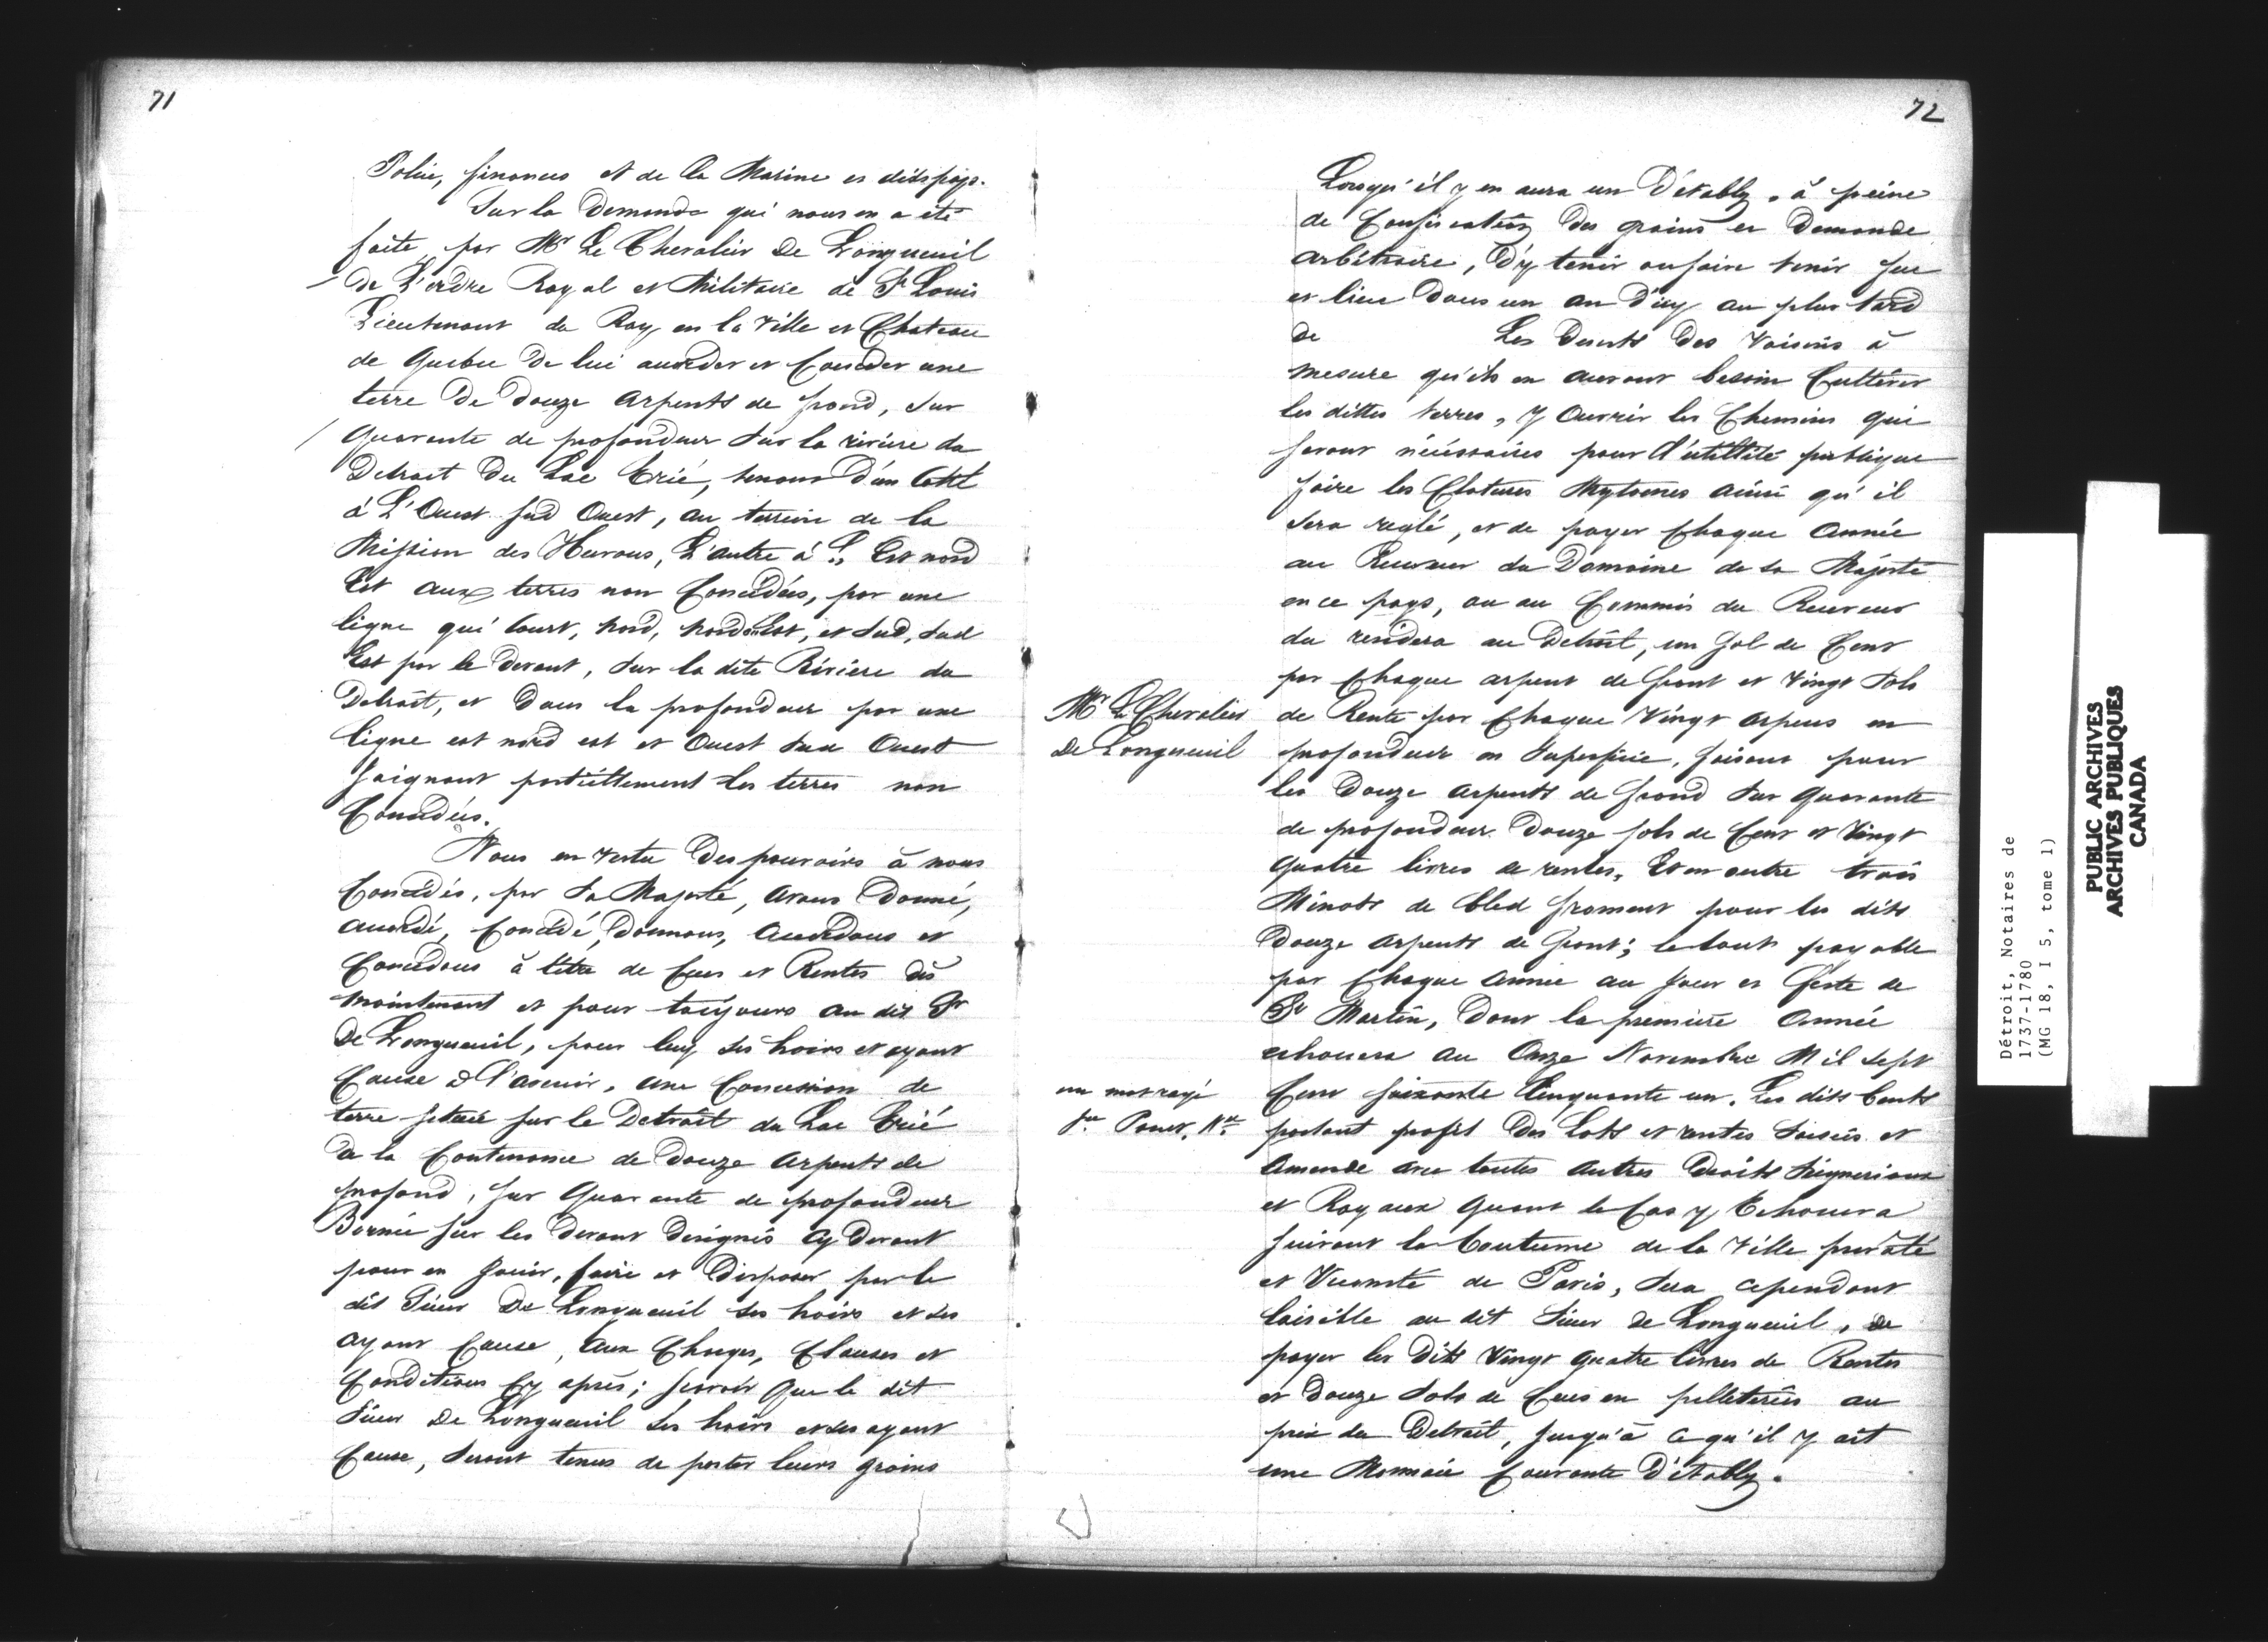 71
Police, finances et de la Marine es dits pays.
Sur la Demande qui nous en a été
faite, par Mr Le Chevalier De Longueuil
De L'ordre Royal et Militaire de St Louis
Lieutenant du Roy en la Ville et Chateau
de Quebec De lui accorder et Conceder une
terre De Douze Arpents de frond, sur
Quarante de profondeur Sur la rivière du
Detroit Du Lac Erié, tenant D'un Coté
à L'Ouest Sud Ouest, au terrein de la
Mission des Hurons, L'autre à L, Est nord
Est aux terres non Concédées, par une
ligne qui Court, nord, nord Est, et Sud, Sud
Est par le Devant, Sur la dite Rivière du
Detroit, et Dans la profondeur par une
ligne est nord est et Ouest Sud Ouest
Joignant les terres non
Concedées.
Nous en vertu Des pouvoirs à nous
Concédés, par Sa Majesté, avons Donné,
accordé, Concédé, Donnons, Accordons et
Concedons à titre de Cens et Rentes dès
maintenant et pour toujours au dit Sr
De Longueuil, pour luy ses hoirs et ayant
Cause à l'avenir, une Concession de
terre scituée sur le Detroit du Lac Erié
de la Contenance de Douze Arpents de
profond, sur Quarante de profondeur
Bornée sur les Devant Désignés Cy Devant
pour en Jouir, faire et Disposer par le
dit Sieur De Longueuil ses hoirs et ses
ayant Cause, aux Charges, Clauses et
Conditions Cy après; scavoir Que le dit
Sieur De Longueuil Ses hoirs et ses ayant
Cause, Seront tenus de porter leurs grains
72
Lorsqu'il y en aura un D'établÿ, à peine
de Confiscation Des grains et Demande
Arbitraire, D'y tenir ou faire tenir feu
et lieu Dans un an D'icy au plus tard
De Les Deserts Des Voisins à
mesure qu'ils en auront besoin Cultiver
les dittes terres, y Ouvrir les Chemins qui
seront nécéssaires pour l'utillité publique
faire les Clotures Mytoenes ainsi qu'il
sera reglé, et de payer Chaque Année
au Receveur du Domaine de Sa Majesté
en ce pays, ou au Commis du Receveur
du residera au Detroit, un Sol de Cens
par Chaque arpent de front et Vingt Sols
Mr Le Chevalier
De Longueuil
de Rente par Chaque Vingt arpens en
profondeur en Superficie, faisant pour
les Douze Arpents de frond Sur Quarante
de profondeur Douze sols de Cens et Vingt
Quatre livres de rentes, Et en outre trois
Minots de bled froment pour les dits
Douze Arpents de front; le tout payable
par Chaque Année au Jour et feste de
St Martin, Dont la première Année
echouera au Onze Novembre Mil Sept
un mot rayé
Cens soixante Cinquante un. Les dits Cents
portant profit Des Lots et ventes Saisies et
Amende avec toutes Autres Droits Seigneuriaux
et Royaux Quant le Cas y Echouera
suivant la Coutume de la Ville prévôté
et Vicomté de Paris, Sera cependant
loisible au dit Sieur de Longueuil, de
payer les Dits Vingt Quatre livres de Rentes
et Douze Sols de Cens en pelleteries au
prix du Detroit, Jusqu'à ce qu'il y ait
une Monnaie Courante D'établÿ.
Détroit, Notaires de
1737-1780
(MG 18, I 5, tome 1)
PUBLIC ARCHIVES
ARCHIVES PUBLIQUES
CANADA